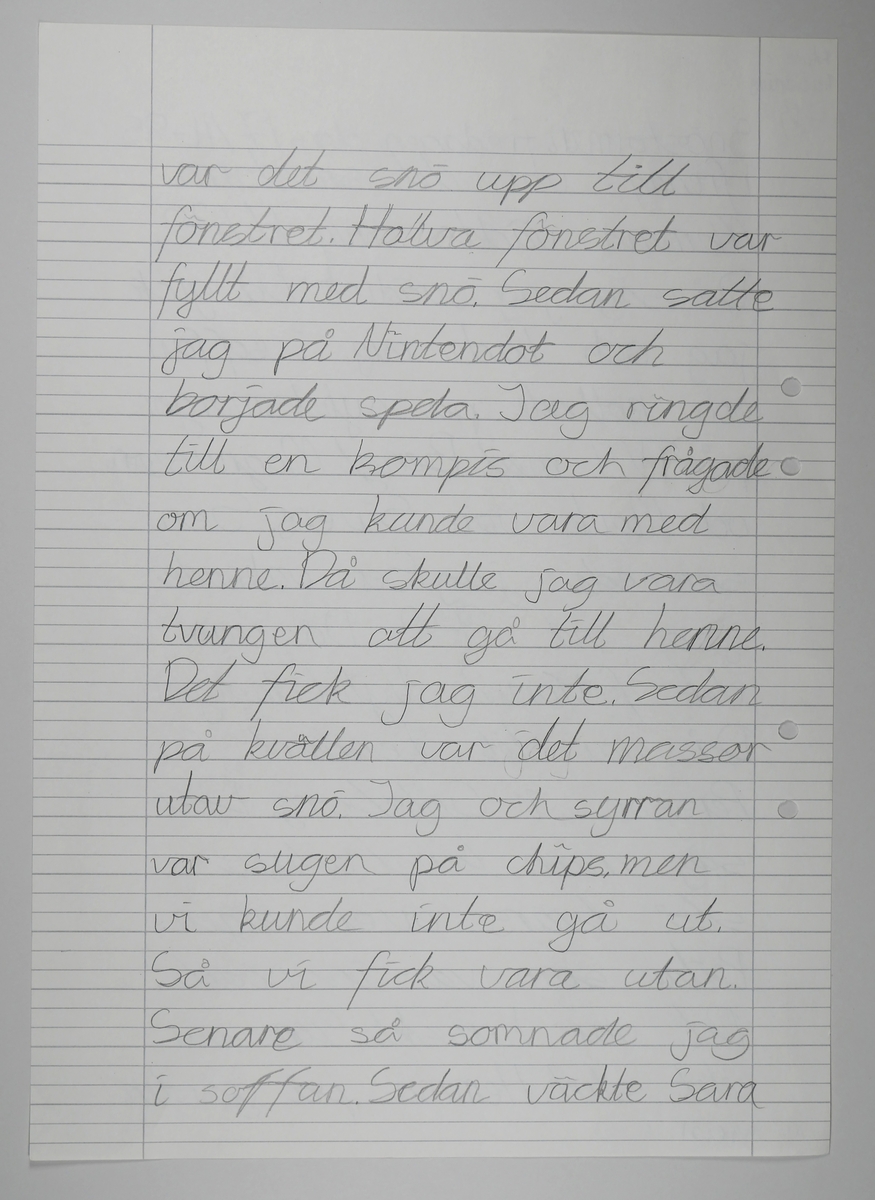 var det snö upp till
fönstret. Halva fönstret var
fyllt med snö. Sedan satte
jag på Nintendot och
började spela. Jag ringde
till en kompis och frågade
om jag kunde vara med
henne. Då skulle jag vara
tvungen att gå till henne.
Det fick jag inte. Sedan
på kvällen var det massor
utav snö. Jag och syrran
var sugen på chips, men
vi kunde inte gå ut.
Så vi fick vara utan.
Senare så somnade jag
i soffan. Sedan väckte Sara